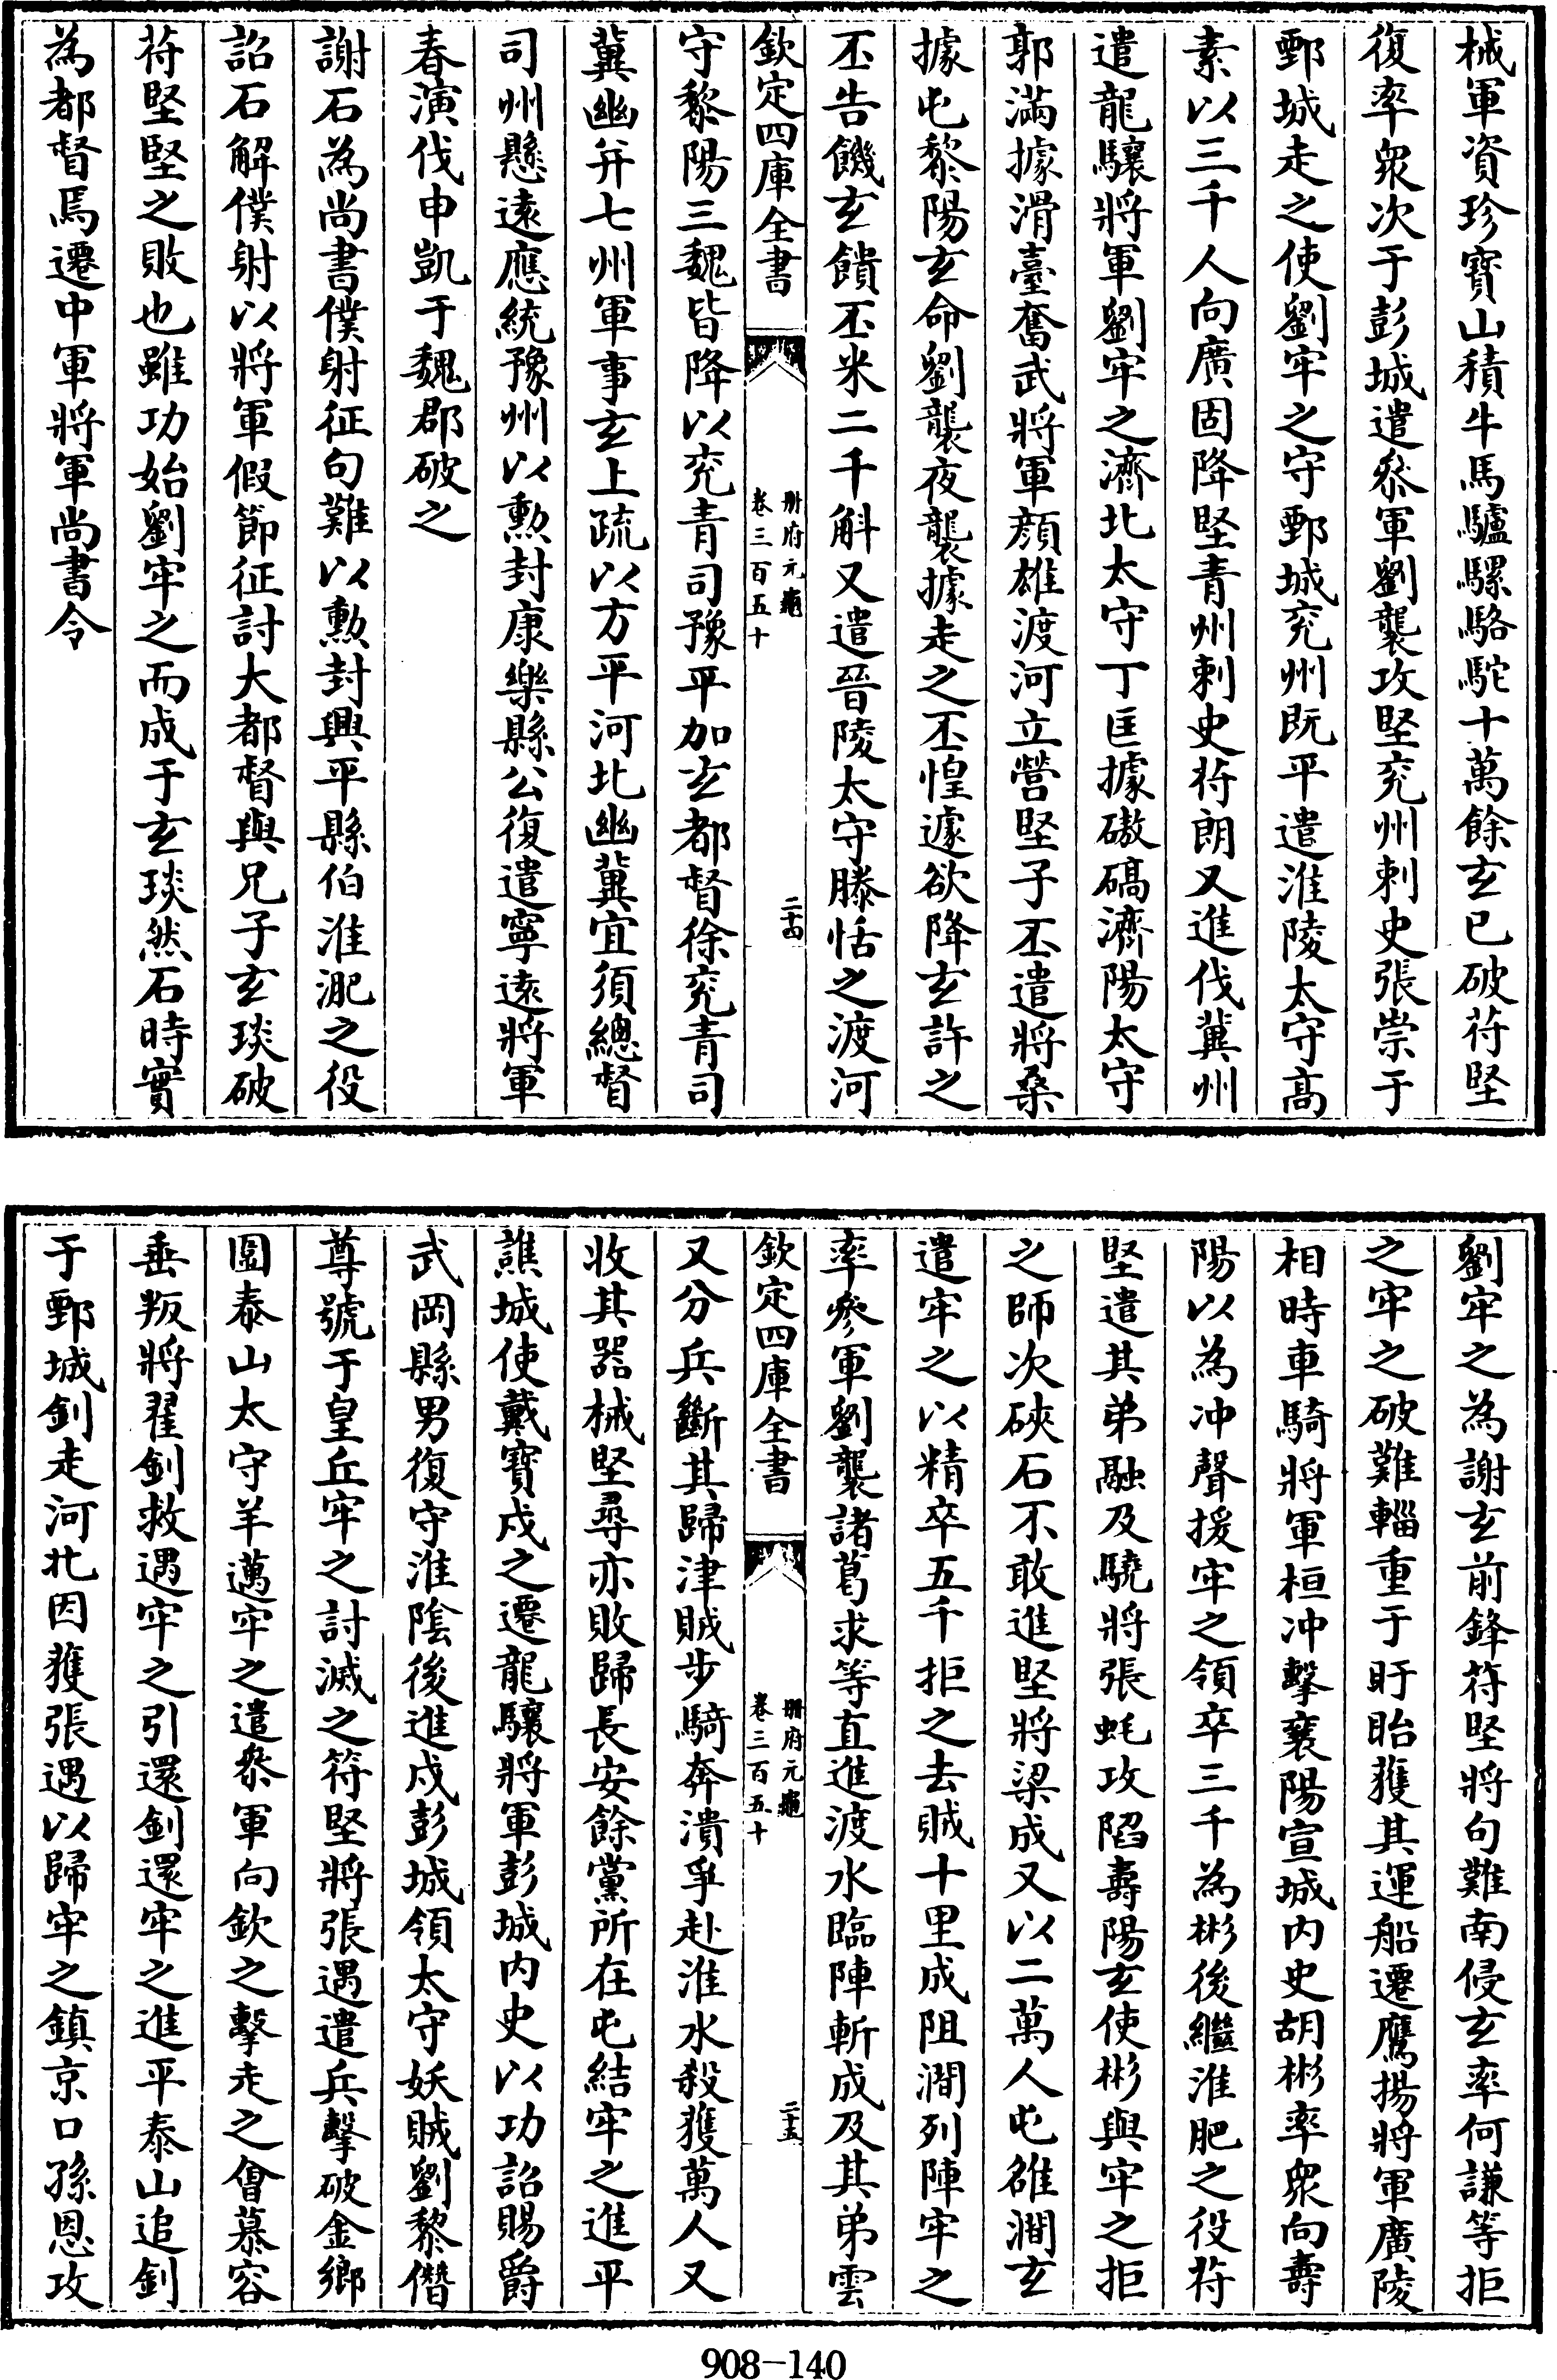 械軍資珍寳山積牛馬驢騾駱駝十萬餘玄已破苻堅
復率衆次于彭城遣叅軍劉襲攻堅兖州刺史張崇于
鄄城走之使劉牢之守鄄城兖州既平遣淮陵太守高
素以三千人向廣固降堅青州刺史苻朗又進伐冀州
遣龍驤將軍劉牢之濟北太守丁匡據磝碻濟陽太守
郭滿據滑臺奮武將軍顔雄渡河立營堅子丕遣將桑
據屯黎陽玄命劉襲夜襲據走之丕惶遽欲降玄許之
丕告饑玄饋丕米二千斛又遣晉陵太守滕恬之渡河
欽定四庫全書
冊府元龜
卷三百五十
二十四
守黎陽三魏皆降以兖青司豫平加玄都督徐兖青司
冀幽并七州軍事玄上疏以方平河北幽冀宜須總督
司州懸遠應統豫州以勲封康樂縣公復遣寧遠將軍
春演伐申凱于魏郡破之
謝石為尚書僕射征句難以勲封興平縣伯淮淝之役
詔石解僕射以將軍假節征討大都督與兄子玄琰破
苻堅堅之敗也雖功始劉牢之而成于玄琰然石時實
為都督焉遷中軍將軍尚書令
劉牢之為謝玄前鋒苻堅將句難南侵玄率何謙等拒
之牢之破難輜重于盱眙獲其運船遷鷹揚將軍廣陵
相時車騎將軍桓冲擊襄陽宣城内史胡彬率衆向壽
陽以為冲聲援牢之領卒三千為彬後繼淮肥之役苻
堅遣其弟融及驍將張蚝攻陷壽陽玄使彬與牢之拒
之師次硤石不敢進堅將梁成又以二萬人屯雒澗玄
遣牢之以精卒五千拒之去賊十里成阻澗列陣牢之
率參軍劉襲諸葛求等直進渡水臨陣斬成及其弟雲
欽定四庫全書
冊府元龜
卷三百五十
二十五
又分兵斷其歸津賊步騎奔潰爭赴淮水殺獲萬人又
收其器械堅尋亦敗歸長安餘黨所在屯結牢之進平
譙城使戴寳戍之遷龍驤將軍彭城内史以功詔賜爵
武岡縣男復守淮陰後進戍彭城領太守妖賊劉黎僭
尊號于皇丘牢之討滅之苻堅將張遇遣兵擊破金鄉
圍泰山太守羊邁牢之遣叅軍向欽之擊走之會慕容
垂叛將翟釗救遇牢之引還釗還牢之進平泰山追釗
于鄄城釗走河北因獲張遇以歸牢之鎮京口孫恩攻
908-140